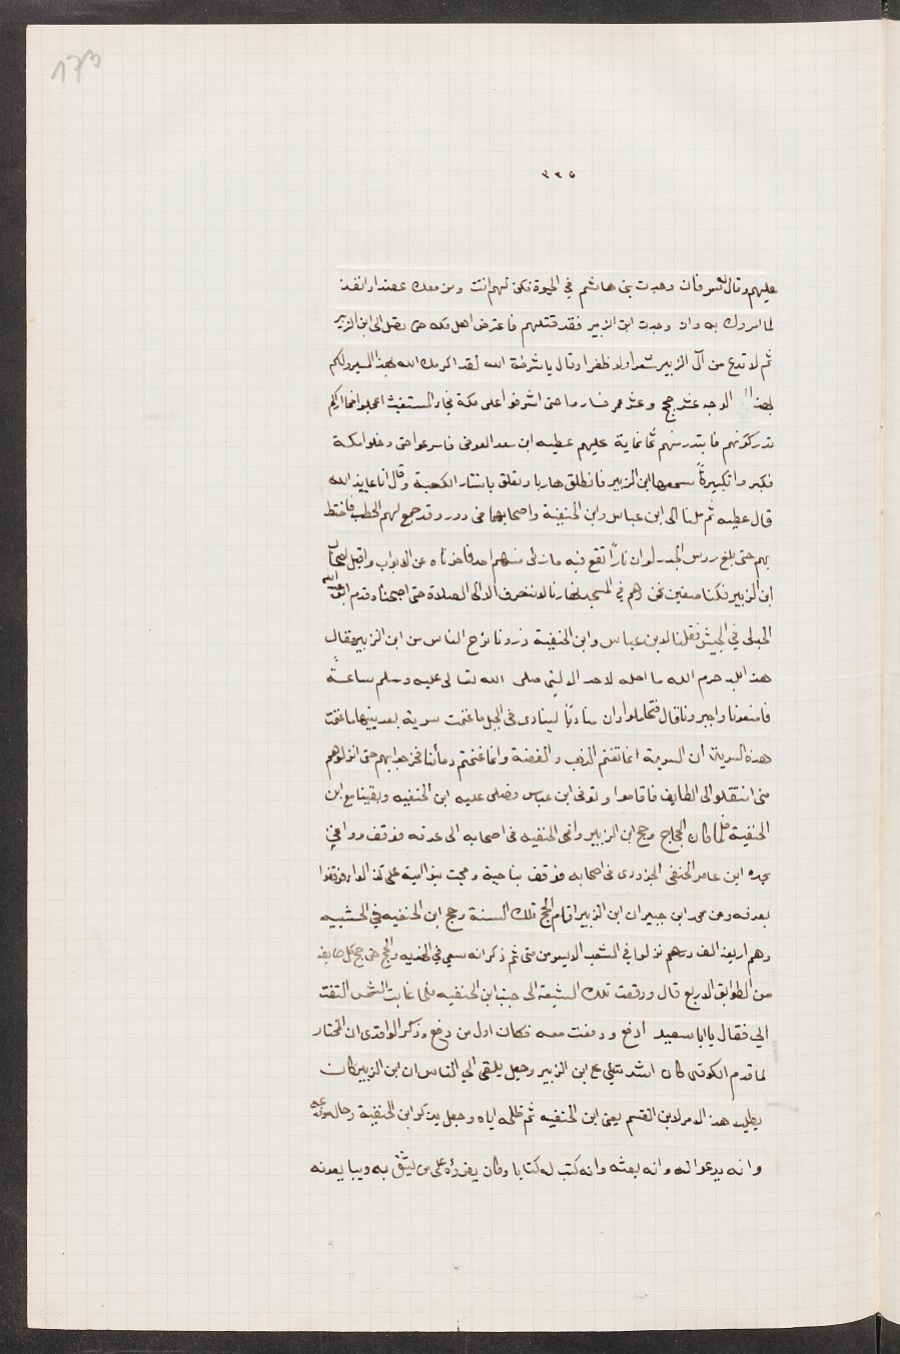 173
٣٢٥
عليهم وقال سر فان وجدت بنى هاشم في الحيوة فكن لهم انت ومن معك عضدا وانفذ
لما امروك به وان وجدت ابن الزبير فقد قتلهم فاعترض اهل مكه حتى تصل الى ابن الزبير
ثم لا تدع من آل الزبير شعرا ولا ظفرا وقال يا شرطة الله لقد اكرمك الله بهذا المسير ولكم
بهذا الوجه عشر حجج وعشر عمر فساروا حتى اشرفوا على مكة فجاء المستغيث اعجلوا فما اراكم
تدركونهم فانتدب منهم ثمانماية عليهم عطيه ابن سعد العوفى فاسرعوا حتى دخلوا مكة
فكبروا تكبيرةً سمعها ابن الزبير فانطلق هاربا وتعلق باستار الكعبة وقال انا عايذ الله
قال عطيه ثم ملنا الى ابن عباس وابن الحنفية واصحابهما فى دور وقد جمع لهم الحطب فاحتط
بهم حتى بلغ روس الجدر لو ان ناراً تقع فيه ما رئى منهم احد فاخرناه عن الابواب واقبل اصحاب
ابن الزبير فكنا صفين نحن وهم في المسجد نهارنا لا ننصرف الا الى الصلاة حتى اصبحنا وقدم ابو عبدالله
الجدلى في الجيش فقلنا لابن عباس وابن الحنفية ذرونا نرح الناس من ابن الزبير فقال
هذا بلد حرم الله ما احله لاحد الا لنبى صلى الله تعالى عليه وسلم ساعةً
فامنعونا واجيرونا قال فتحملوا وان مناديًا لينادى فى الجبل ما غنمت سرية بعد نبيها ما غنمت
هذه السرية ان السرية انما تغنم الذهب والفضة وانما غنمتم دماءنا فخرجوا بهم حتى انزلوهم
منى انتقلوا الى الطايف فاقاموا وتوفى ابن عباس وصلى عليه ابن الحنفيه وبقينا مع ابن
الحنفية فلما كان الحجاج وحج ابن الزبير وافى الحنفيه فى اصحابه الى عرفه فوقف ووافى
نجده ابن عامر الحنفى الحرورى فى اصحابه فوقف ناحية وحجت بنو امية على لواء فوقفوا
بعرفه وعن محمد ابن جبير ان ابن الزبير اقام الحج تلك السنة وحج ابن الحنفيه في الخشبيه
وهم اربعة الف وهم نزلوا في الشعب الايسر من منى ثم ذكر انه سعى في الهدنه والحج حتى حج كل طايفه
من الطوايق الاربع قال ووقفت تلك العشية الى جنب ابن الحنفيه فلما غابت الشمس التفت
الي فقال يا ابا سعيد ادفع ودفعت معه فكان اول من دفع وذكر الواقدى ان المختار
لما قدم الكوفة كان اشد شيئ على ابن الزبير وجعل يلقى الي الناس ان ابن الزبير كان
يطلب هذا الامر لابن القسم يعنى ابن الحنفيه ثم ظلمه اياه وجعل يذكر ابن الحنفية وحاله وورعه
وانه يدعوا له وانه بعثه وانه كتب له كتابا وكان يقرؤه على من يثق به ويبايعونه